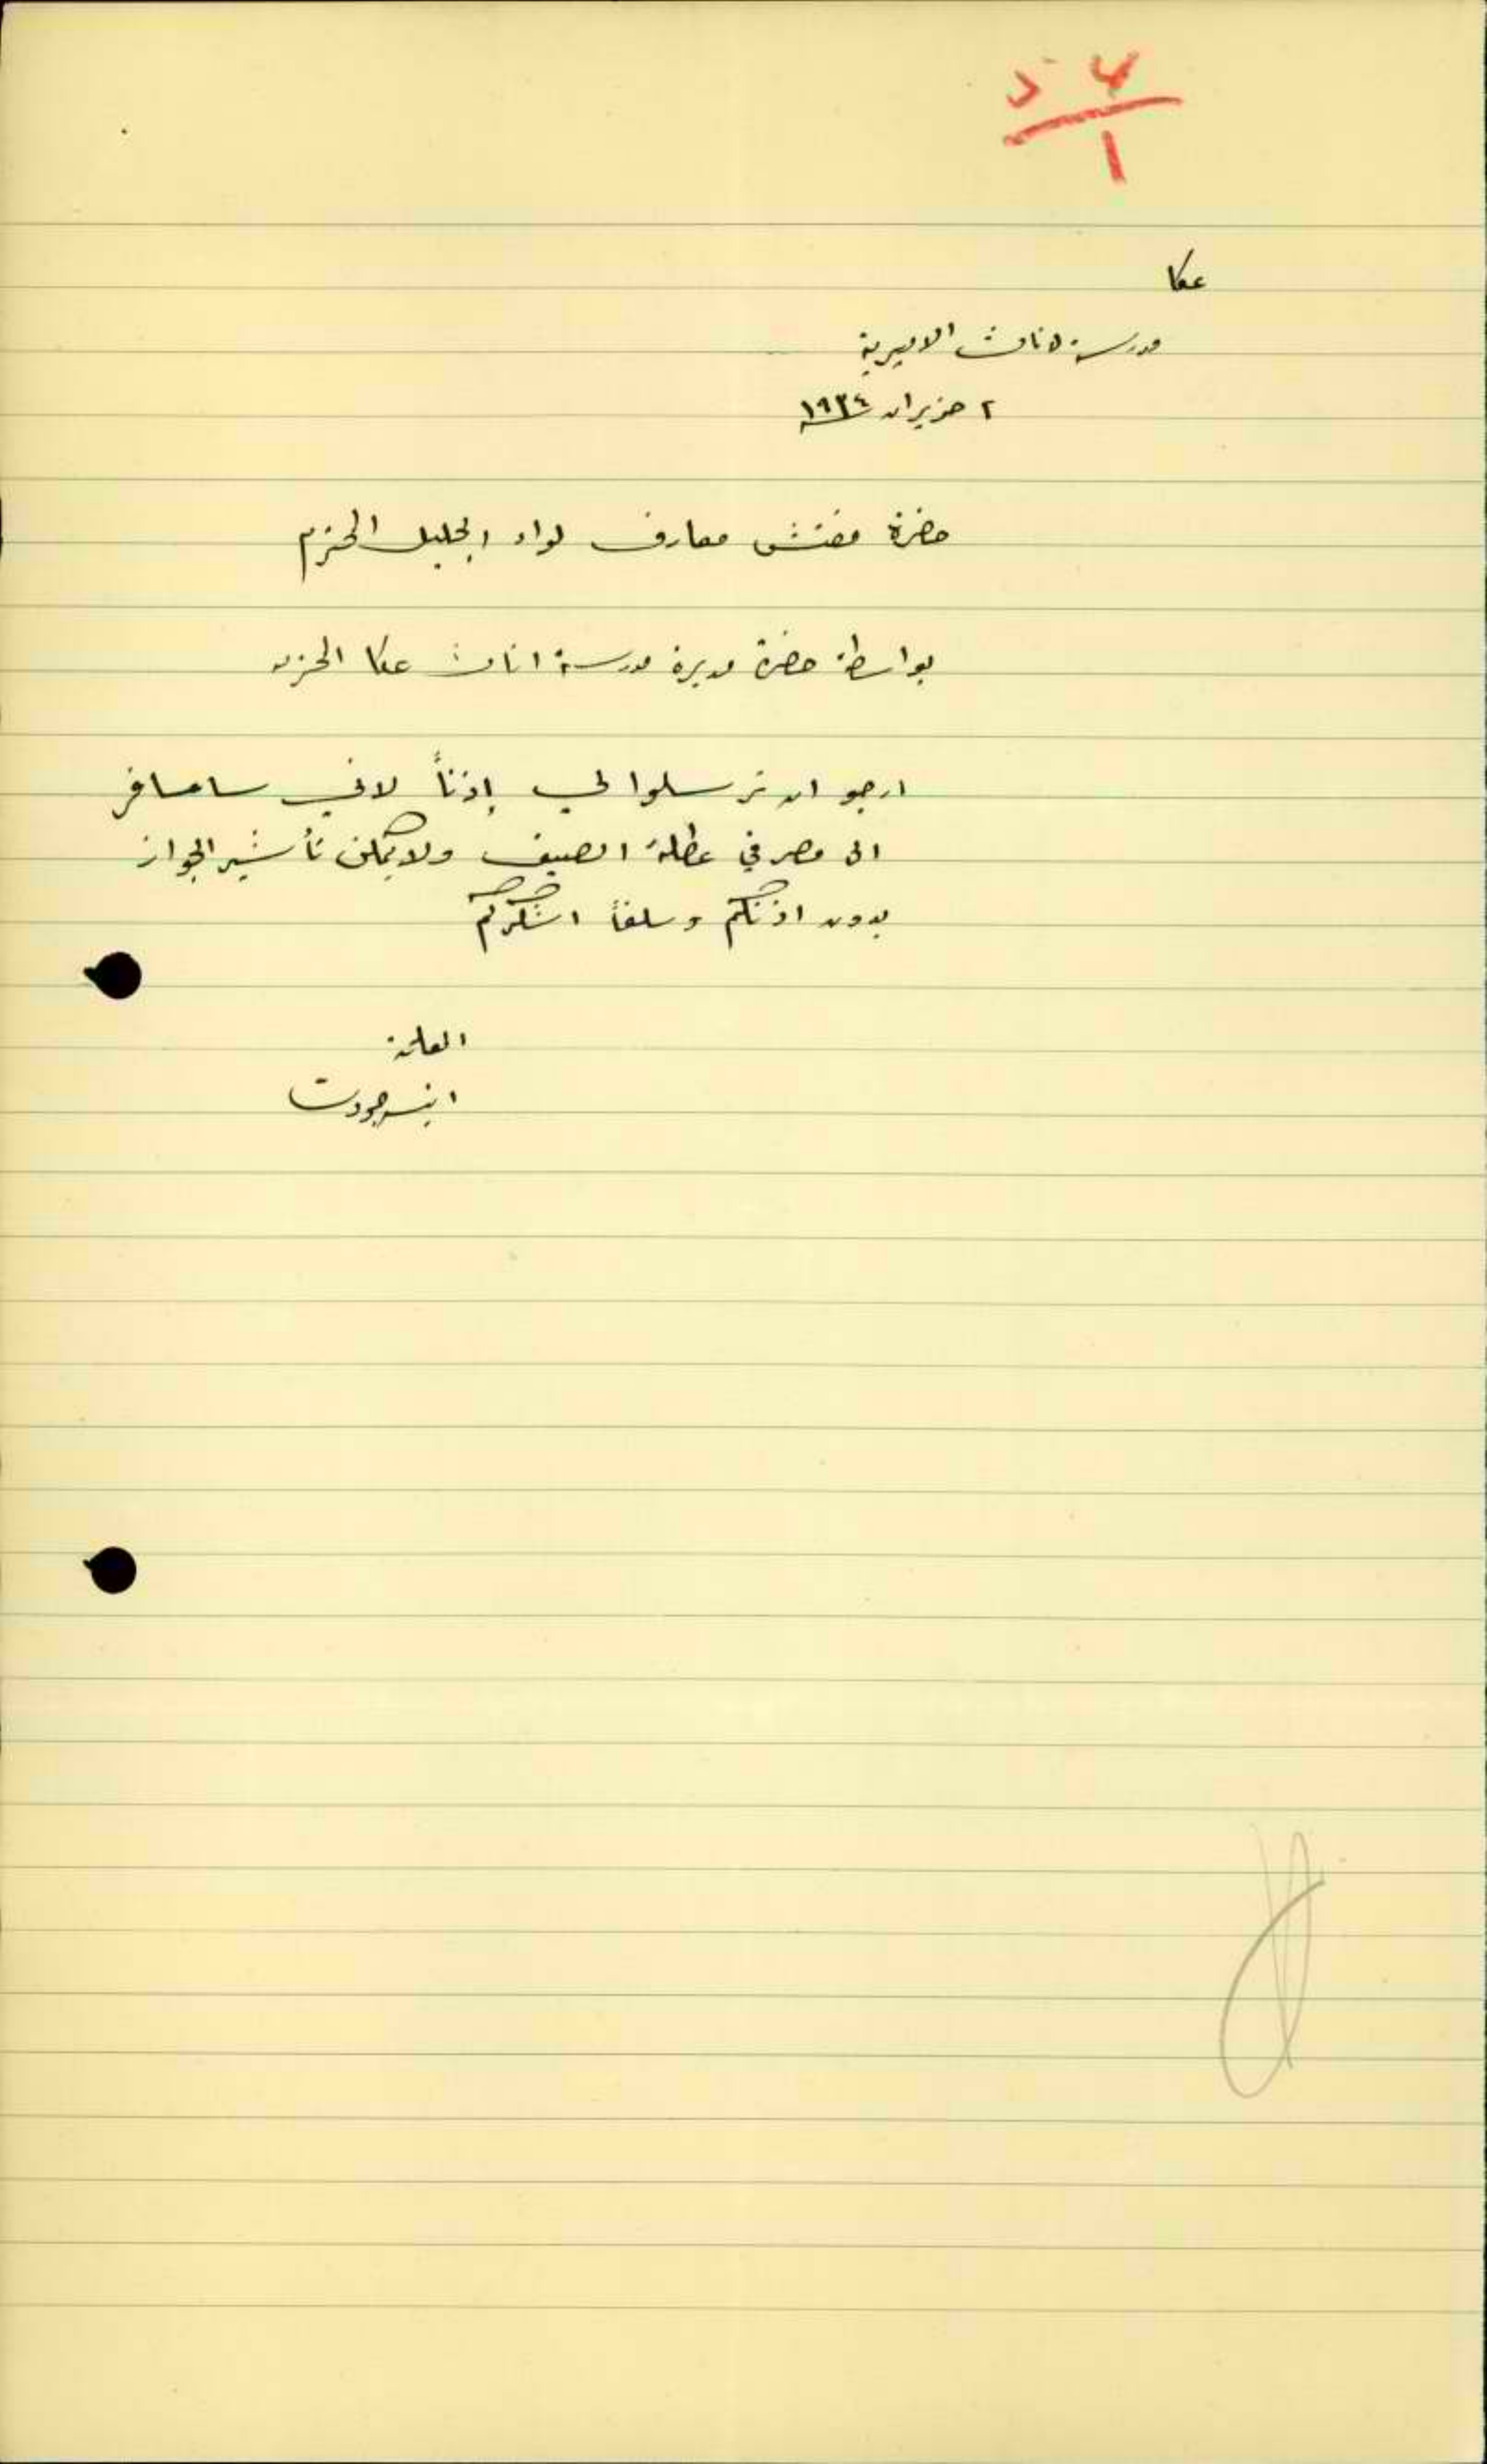 عكا
مدرسة اناث الاميرية
٢ حزيران ١٩٣٤
حضرة مفتش معارف لواء الجليل المحترم
بواسطة حضرة مديرة مدرسة اناث عكا المحترمه
ارجو ان ترسلوا لي إذناً لاني سأسافر
الى مصر في عطلة الصيف ولا يمكن تأشير الجواز
بدون اذنكم وسلفاً اشكركم
المعلمة
جودت